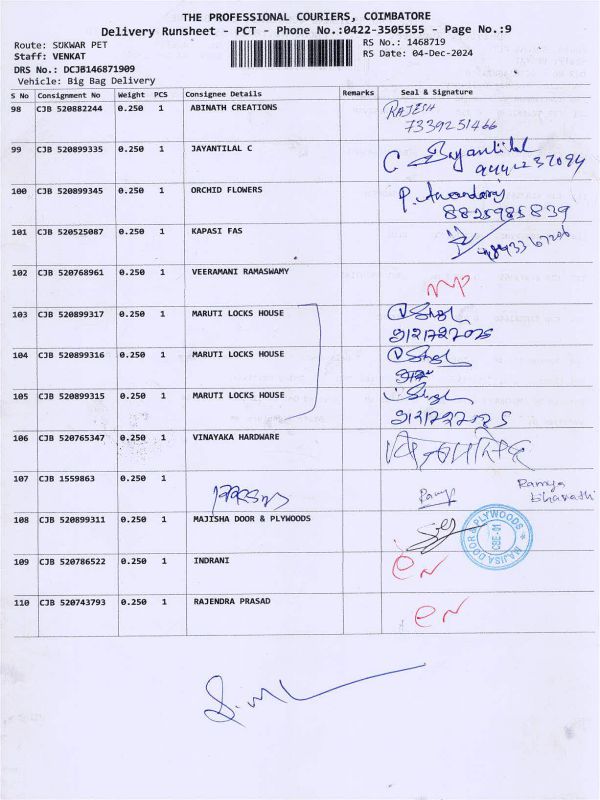 THE PROFESSIONAL COURIERS, COIMBATORE
Delivery Runsheet - PCT - Phone No.:0422-3505555 - Page No.:9
Route: SUKWAR PET
RS No.: 1468719
Staff: VENKAT
RS Date: 04-Dec-2024
DRS No.: DCJB146871909
Vehicle: Big Bag Delivery
S No Consignment No Weight PCS Consignee Details Remarks Seal & Signature
98 CJB 520882244 0.250 1 ABINATH CREATIONS RAJESH
7339251466
99 CJB 520899335 0.250 1 JAYANTILAL C C Jayantilal
100 CJB 520899345 0.250 1 ORCHID FLOWERS
8825985839
101 CJB 520525087 0.250 1 KAPASI FAS
102 CJB 520768961 0.250 1 VEERAMANI RAMASWAMY
103 CJB 520899317 0.250 1 MARUTI LOCKS HOUSE
104 CJB 520899316 0.250 1 MARUTI LOCKS HOUSE
105 CJB 520899315 0.250 1 MARUTI LOCKS HOUSE
106 CJB 520765347 0.250 1 VINAYAKA HARDWARE
107 CJB 1559863 0.250 1 Ramya
bharathi
108 CJB 520899311 0.250 1 MAJISHA DOOR & PLYWOODS
MAJISA DOOR & PLYWOODS
CBE-01
109 CJB 520786522 0.250 1 INDRANI
110 CJB 520743793 0.250 1 RAJENDRA PRASAD